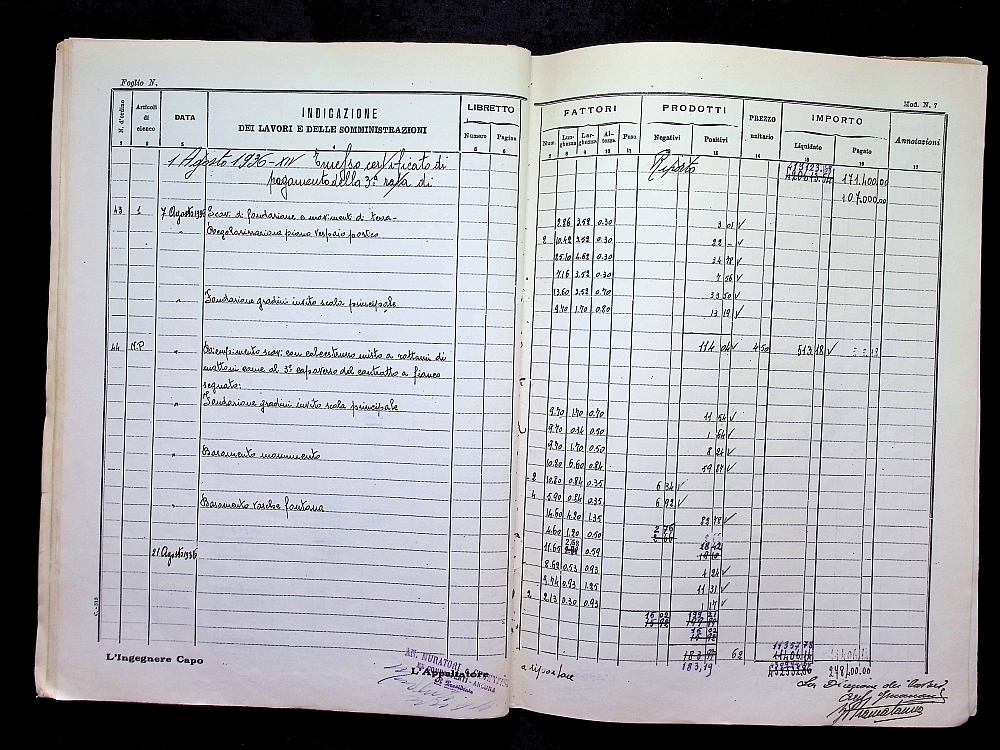 Foglio N.
N. d'ordine
Articoli di elenco
DATA
INDICAZIONE
DEI LAVORI E DELLE SOMMINISTRAZIONI
LIBRETTO
Numero
Pagina
1 Agosto 1936-XIV Emesso certificato di
pagamento della 3ª rata di
43 1 7 Agosto 1936 Scavi di fondazione e movimenti di terra-
" Regolarizzazione piano vespaio portico
" Fondazione gradini invito scala principale
44 N.P " Riempimento scavi con calcestruzzo misto a rottami di
mattoni come al 3º capoverso del contratto a fianco
segnato:
" Fondazione gradini invito scala principale
" Basamento monumento
" Basamento vasche fontana
21 Agosto 1936
C. - 219
L'Ingegnere Capo
AN. MURATORI
ANCONA
L'Appaltatore
Mod. N. 7
FATTORI
PRODOTTI
PREZZO unitario
IMPORTO
Annotazioni
Num.
Lunghezza
Larghezza
Altezza
Peso
Negativi
Positivi
Liquidato
Pagato
Riporto 171.400.00
107.000.00
2.86 3.52 0.30 3 01 √
2 10.42 3.52 0.30 22 - √
25.10 4.62 0.30 34 78 √
7.16 3.52 0.30 7 56 √
13.60 3.52 0.70 33 50 √
9.70 1.70 0.80 13 19 √
114 04 √ 4 50 513.18 √
9.70 1.70 0.70 11 54 √
9.70 0.34 0.50 1 64 √
9.70 1.70 0.50 8 24 √
10.80 6.60 0.84 59 87 √
2 10.80 0.84 0.35 6 34 √
4 5.90 0.84 0.35 6 92 √
14.60 4.20 1.35 82 78 √
4.60 1.20 0.50 2 76
11.65 2.68 0.59 18 42
8.62 0.53 0.93 4 24 √
9.74 0.93 1.25 11 31 √
2 2.13 0.30 0.93 1 17 √
16 02
62
183,19
11357 78
248,400.00
a riportare